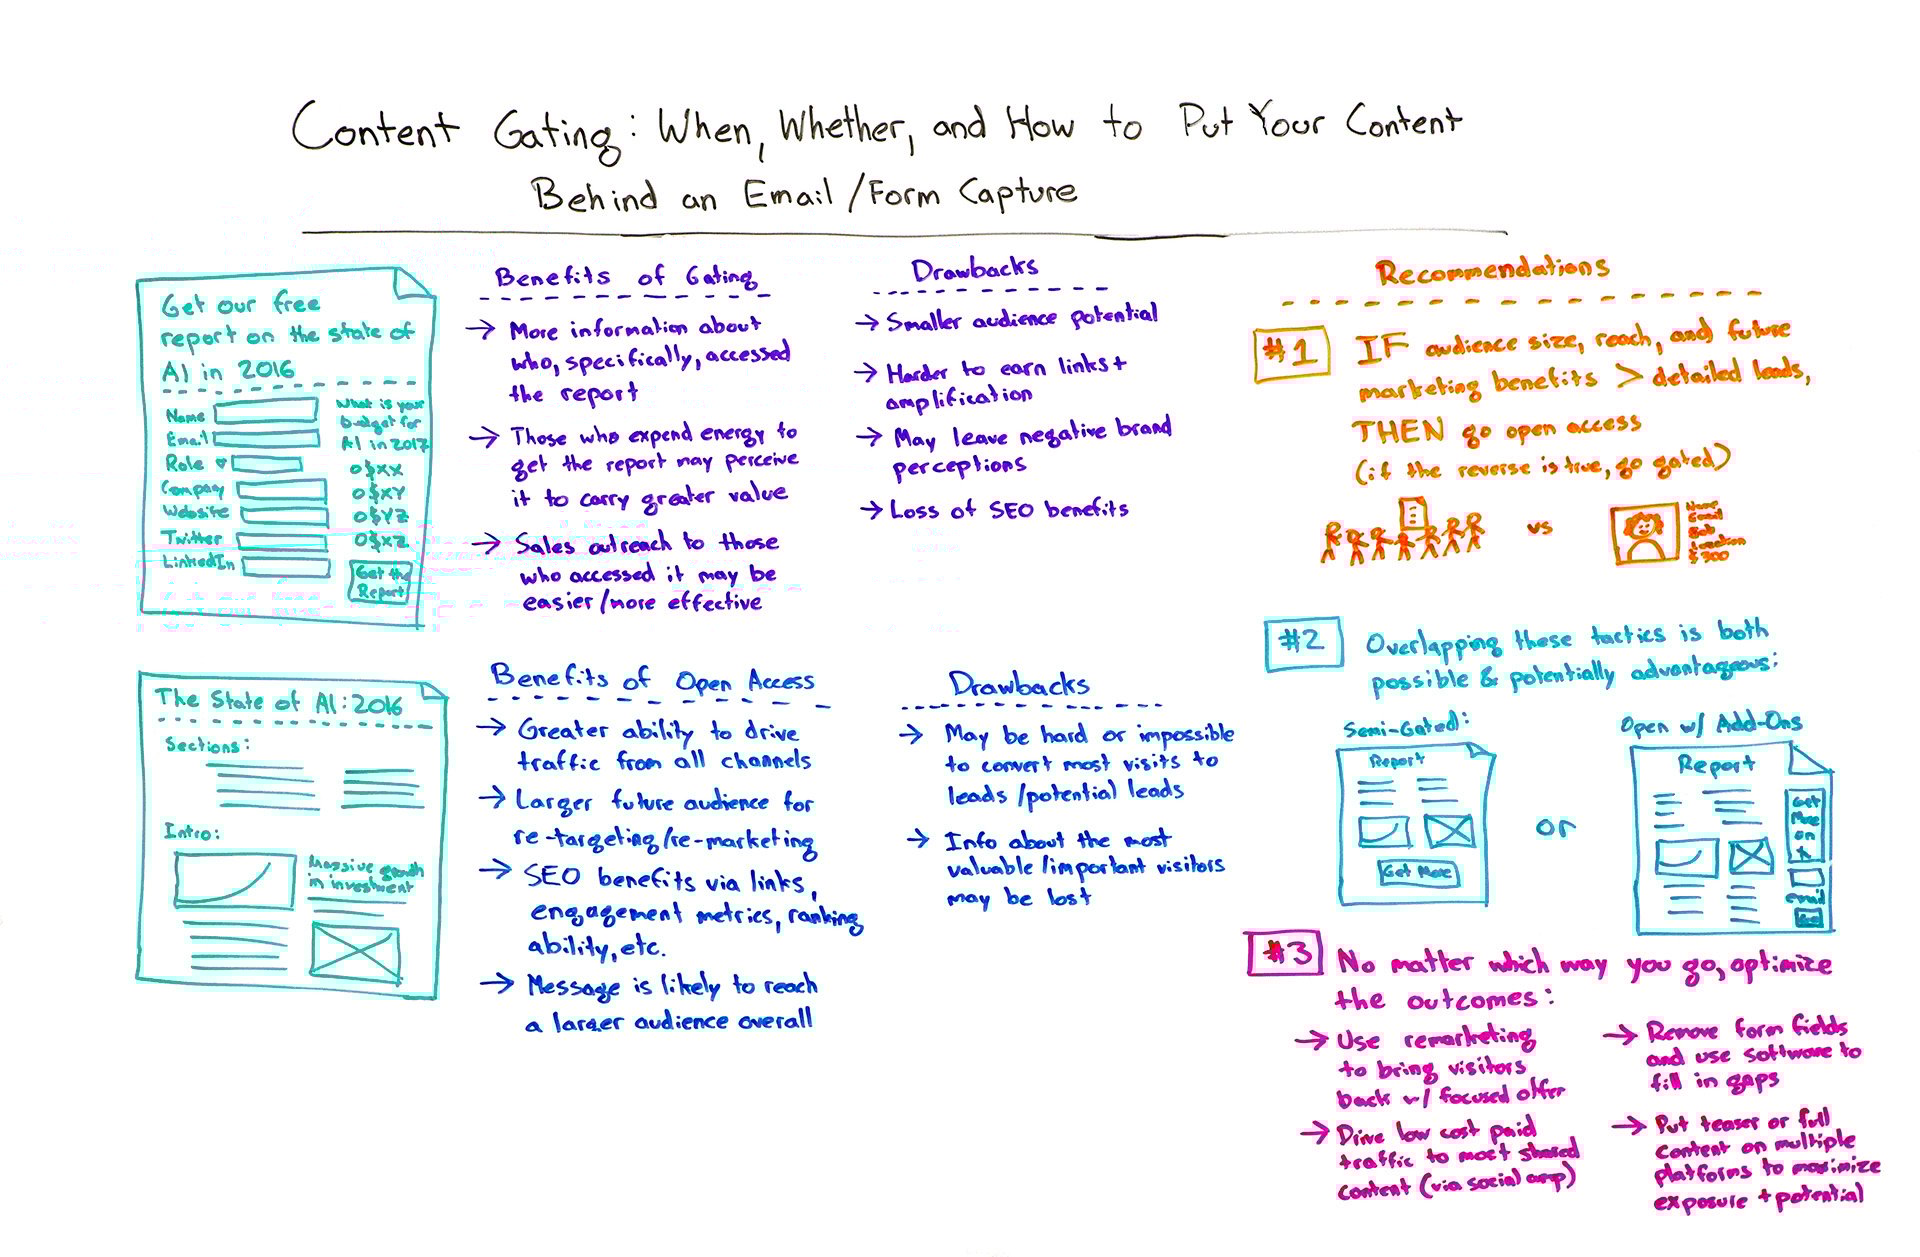 Content Gating: When, Whether, and How to Put Your Content
Behind an Email/Form Capture
Get our free
report on the state of
AI in 2016
Name
Email
Role
Company
Website
Twitter
LinkedIn
What is your
budget for
AI in 2017
$XX
$XY
$YZ
$XZ
Get the
Report
Benefits of Gating
→ More information about
who, specifically, accessed
the report
→ Those who expend energy to
get the report may perceive
it to carry greater value
→ Sales outreach to those
who accessed it may be
easier/more effective
Drawbacks
→ Smaller audience potential
→ Harder to earn links +
amplification
→ May leave negative brand
perceptions
→ Loss of SEO benefits
The State of AI: 2016
Sections:
Intro:
Massive growth
in investment
Benefits of Open Access
→ Greater ability to drive
traffic from all channels
→ Larger future audience for
re-targeting/re-marketing
→ SEO benefits via links,
engagement metrics, ranking
ability, etc.
→ Message is likely to reach
a larger audience overall
Drawbacks
→ May be hard or impossible
to convert most visits to
leads/potential leads
→ Info about the most
valuable/important visitors
may be lost
Recommendations
#1 IF audience size, reach, and future
marketing benefits > detailed leads,
THEN go open access
(if the reverse is true, go gated)
vs
Name
Email
Job
Location
$300
#2 Overlapping these tactics is both
possible & potentially advantageous:
Semi-Gated:
Report
Get More
or
Open w/ Add-Ons
Report
Get
More
on
X
email
#3 No matter which way you go, optimize
the outcomes:
→ Use remarketing
to bring visitors
back w/ focused offer
→ Drive low cost paid
traffic to most shared
content (via social amp)
→ Remove form fields
and use software to
fill in gaps
→ Put teaser or full
content on multiple
platforms to maximize
exposure + potential